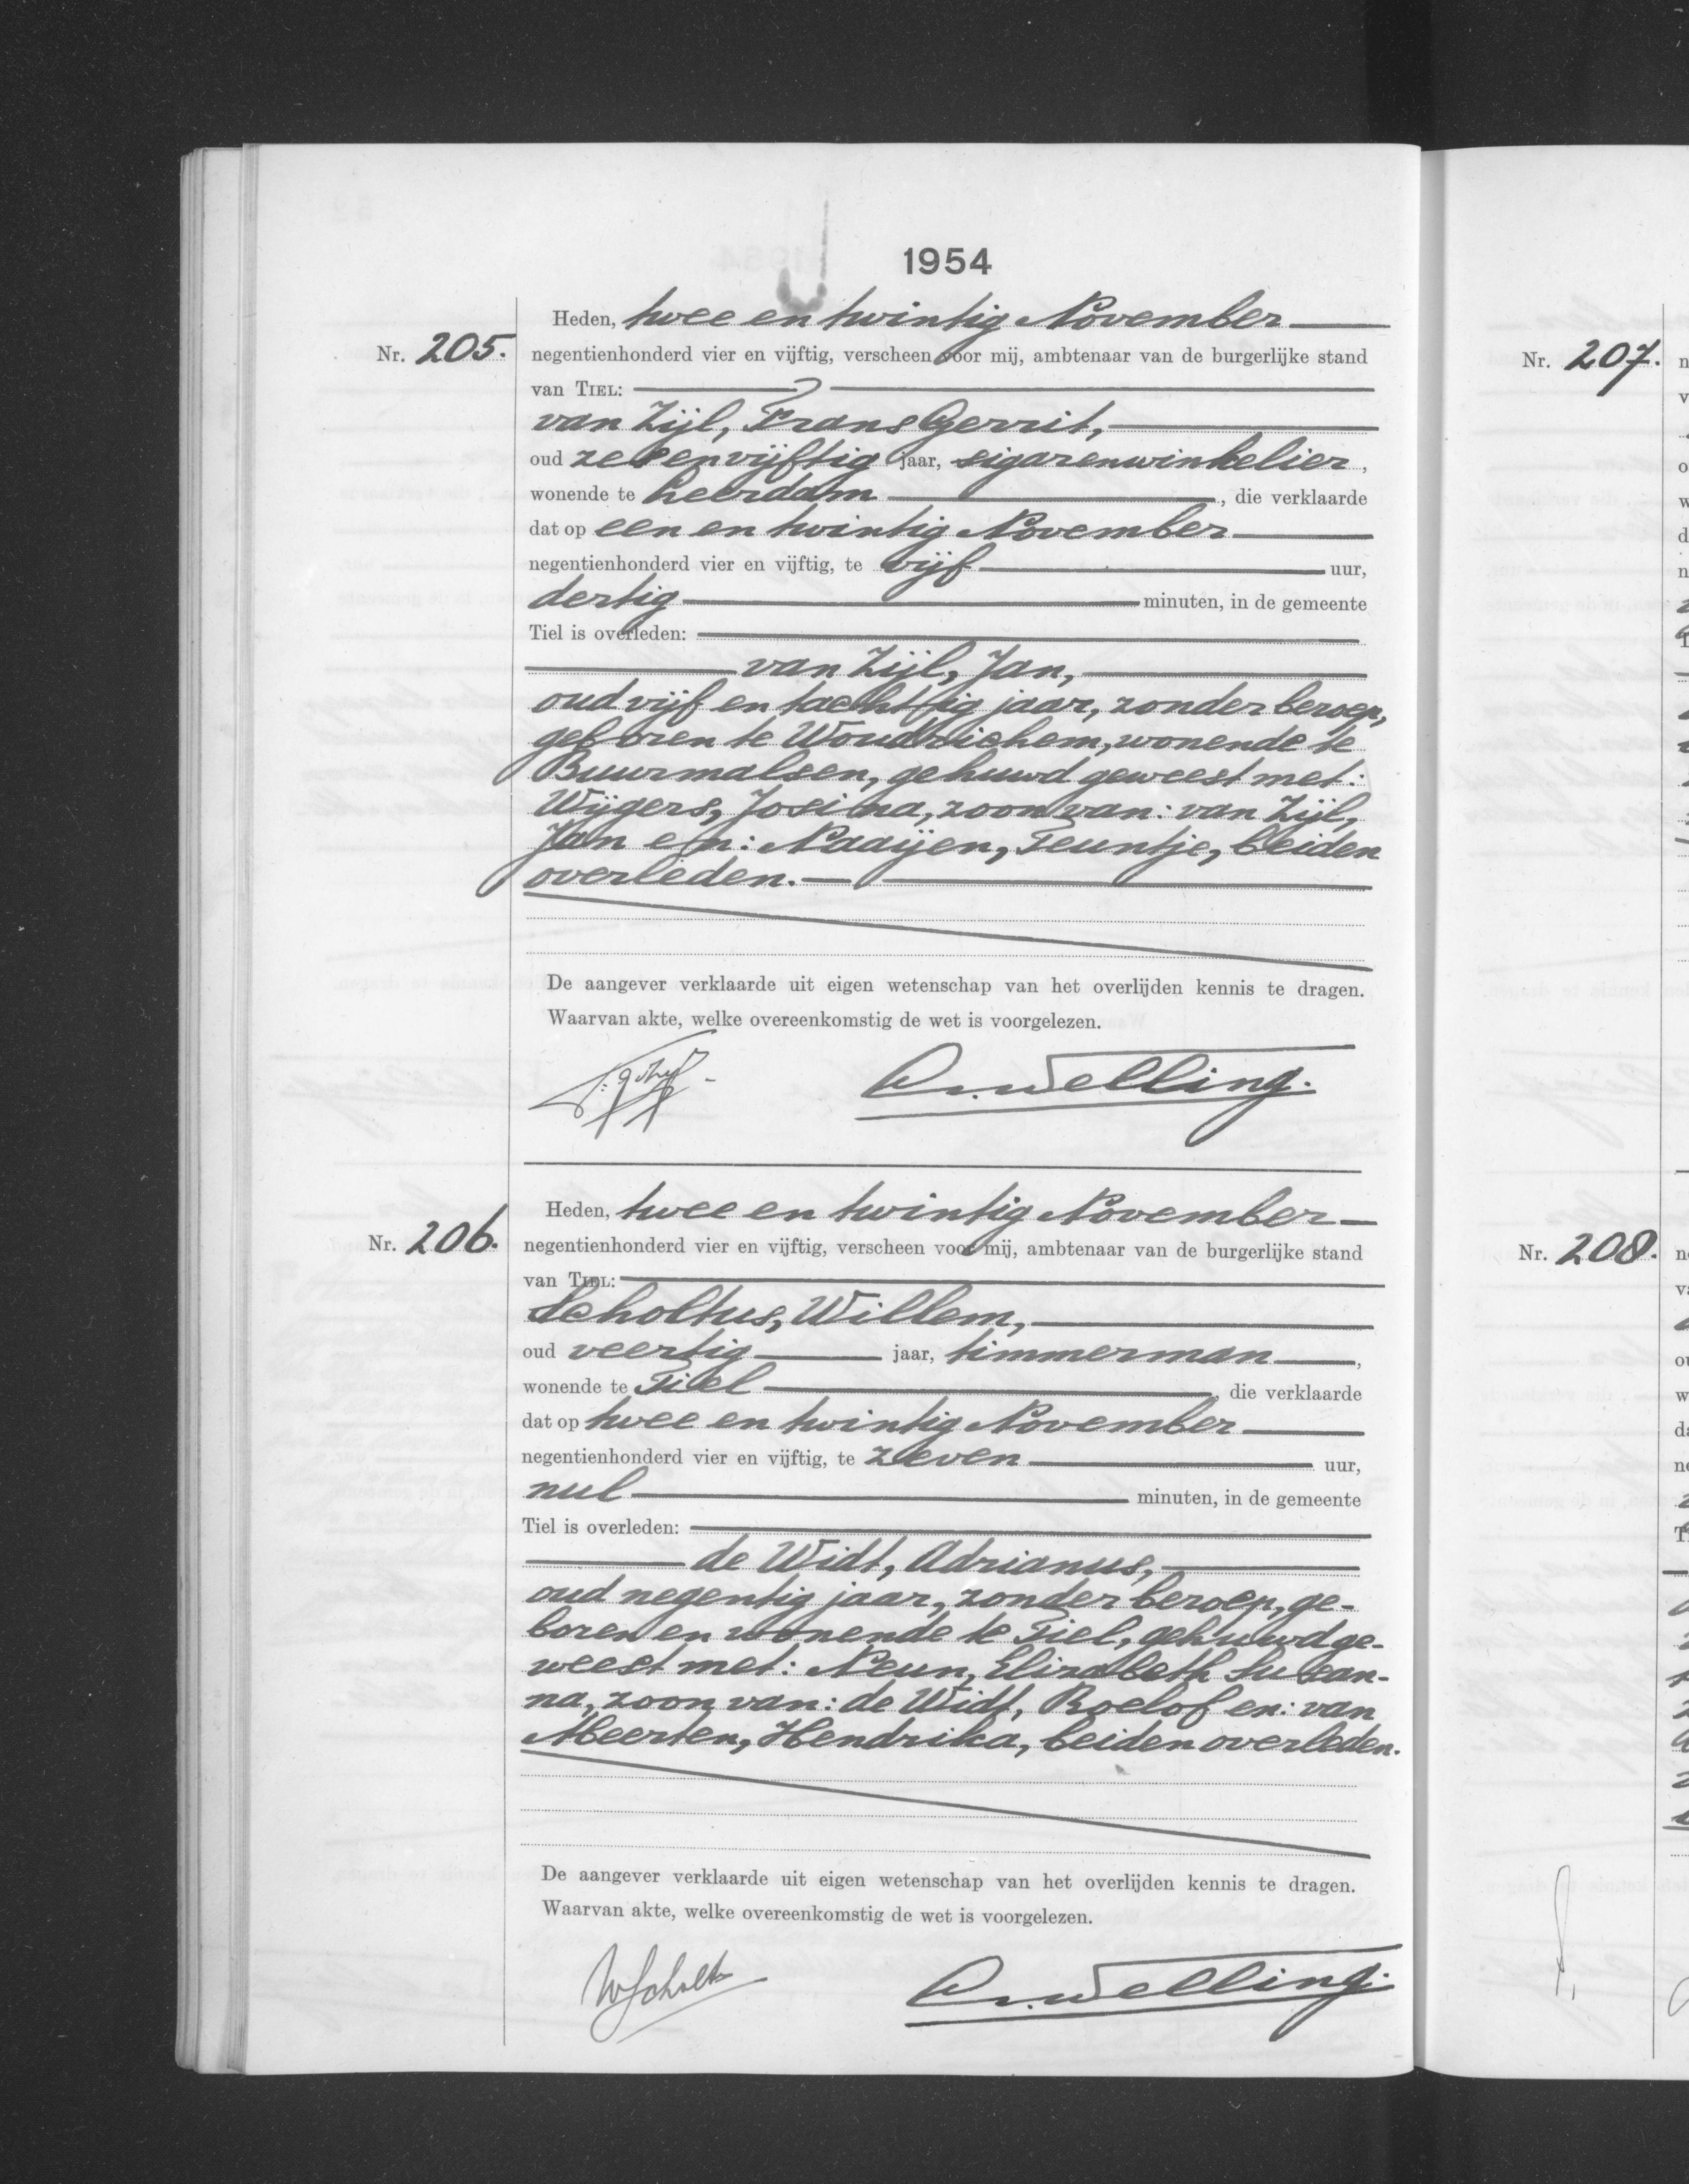 1954
Nr. 205.
Heden, twee en twintig November
negentienhonderd vier en vijftig, verscheen voor mij, ambtenaar van de burgerlijke stand
van TIEL:
van Zijl, Frans Gerrit,
oud zes en vijftig jaar, sigarenwinkelier,
wonende te Leerdam, die verklaarde
dat op een en twintig November
negentienhonderd vier en vijftig, te vijf uur,
dertig minuten, in de gemeente
Tiel is overleden:
van Zijl, Jan,
oud vijf en tachtig jaar, zonder beroep,
geboren te Woudrichem, wonende te
Buurmalsen, gehuwd geweest met:
Wijgers, Josina, zoon van: van Zijl,
Jan en: Naaijen, Teuntje, beiden
overleden.
De aangever verklaarde uit eigen wetenschap van het overlijden kennis te dragen.
Waarvan akte, welke overeenkomstig de wet is voorgelezen.
Welling.
Nr. 206.
Heden, twee en twintig November
negentienhonderd vier en vijftig, verscheen voor mij, ambtenaar van de burgerlijke stand
van TIEL:
Scholtus, Willem,
oud veertig jaar, timmerman,
wonende te Tiel, die verklaarde
dat op twee en twintig November
negentienhonderd vier en vijftig, te zeven uur,
nul minuten, in de gemeente
Tiel is overleden:
de Widt, Adrianus,
oud negentig jaar, zonder beroep, ge-
boren en wonende te Tiel, gehuwd ge-
weest met: Neun, Elizabeth Susan-
na, zoon van: de Widt, Roelof en: van
Meerten, Hendrika, beiden overleden.
De aangever verklaarde uit eigen wetenschap van het overlijden kennis te dragen.
Waarvan akte, welke overeenkomstig de wet is voorgelezen.
WScholt
Welling.
Nr. 207.
Nr. 208.